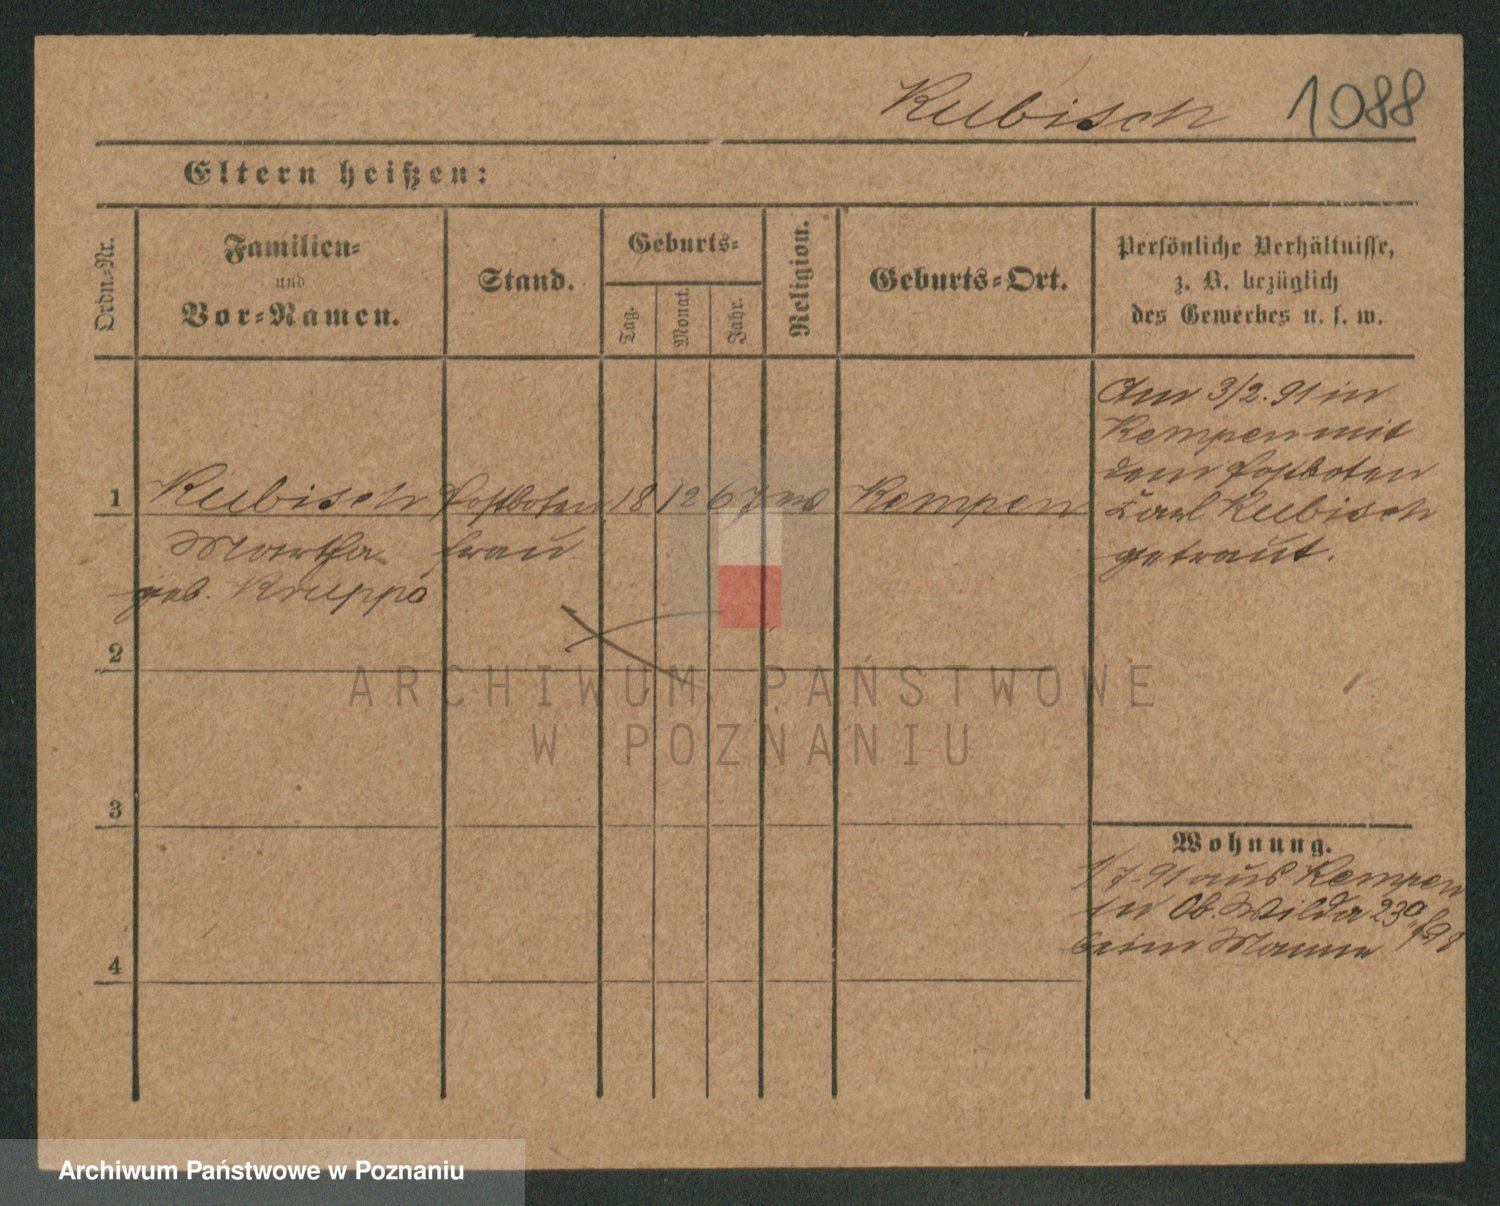 Kubisch 1088
Eltern heißen:
Ordn.-Nr.
Familien-
und
Vor-Namen.
Stand.
Geburts-
Tag.
Monat.
Jahr.
Religion.
Geburts-Ort.
Persönliche Verhältnisse,
z. B. bezüglich
des Gewerbes u. s. w.
Am 3/2. 91 in
Kempen mit
dem Postboten
Carl Kubisch
getraut.
1 Kubisch Postboten 18 12 67 Kempen
Martha frau
geb.
2
3
4
Wohnung.
1/7. 91 aus Kempen
in Ob. Wilda 23a
beim Manne
ARCHIWUM PAŃSTWOWE
W POZNANIU
Archiwum Państwowe w Poznaniu